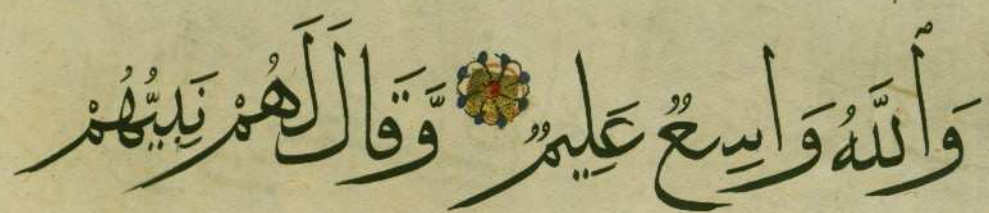 وَٱللَّهُ وَاسِعٌ عَلِيمٌ وَّقَالَ لَهُمْ نَبِيُّهُمْ